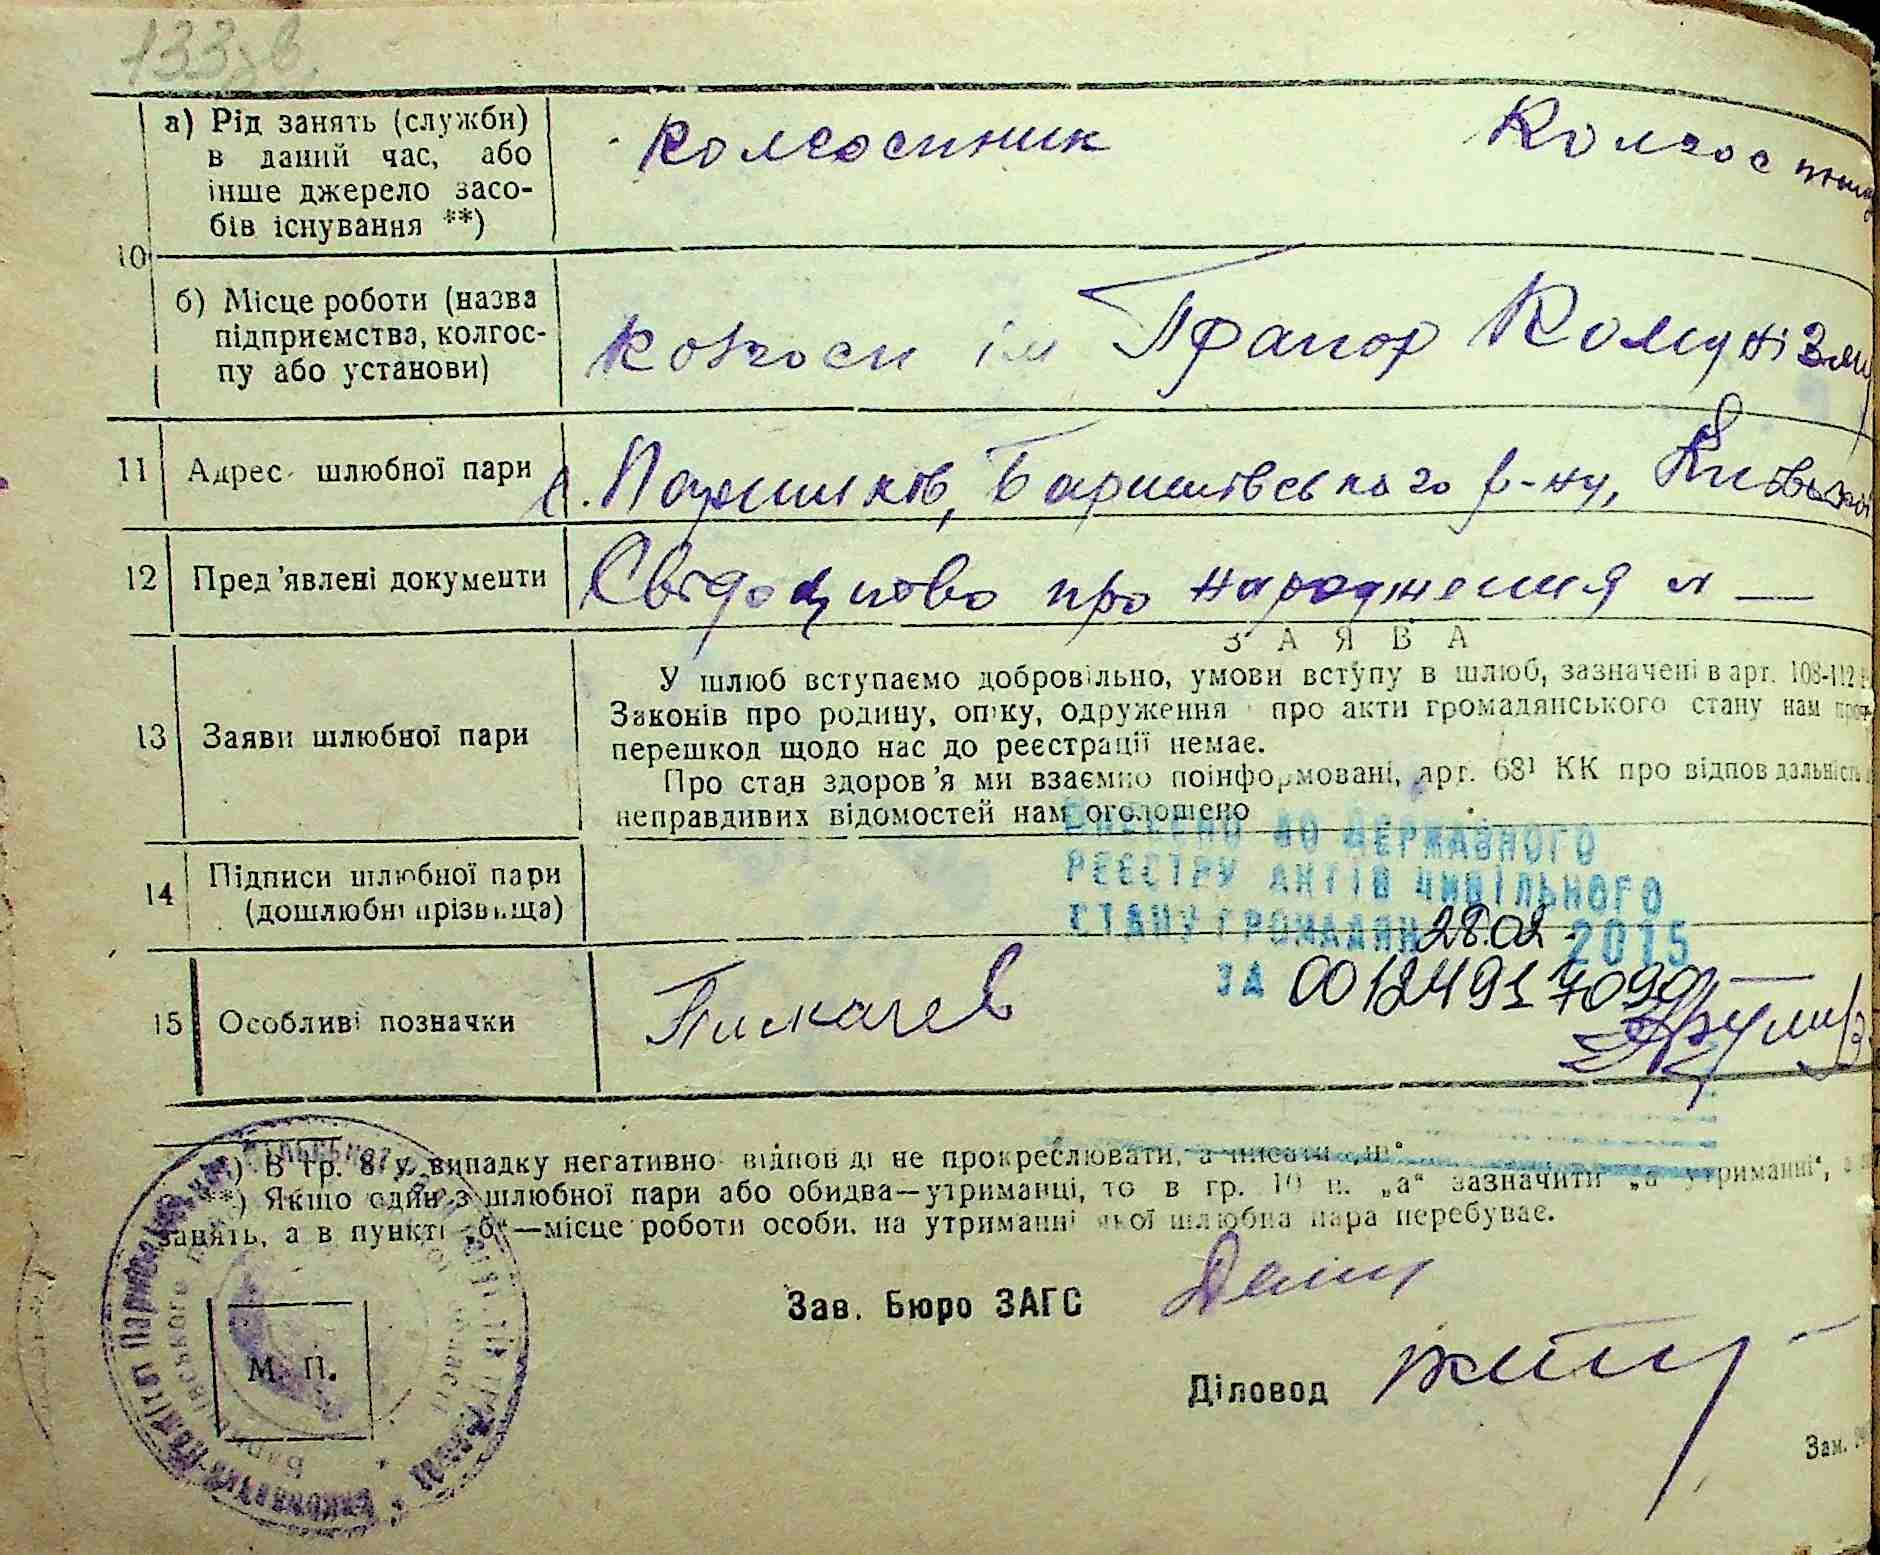 133 зв.
а) Рід занять (служби)
в даний час, або
інше джерело засо-
бів існування **)
колгоспник Колгосп
10
б) Місце роботи (назва
підприємства, колгос-
пу або установи)
колгосп ім Прапор Комунізму
11 Адрес шлюбної пари с. Паришків, Баришівського р-ну, Київської
12 Пред'явлені документи Свідоцтво про народження
ЗАЯВА
13 Заяви шлюбної пари
У шлюб вступаємо добровільно, умови вступу в шлюб, зазначені в арт. 108-112
Законів про родину, опіку, одруження про акти громадянського стану нам
перешкод щодо нас до реєстрації немає.
Про стан здоров'я ми взаємно поінформовані, арт. 68¹ КК про відповідальність
неправдивих відомостей нам оголошено
ВНЕСЕНО ДО ДЕРЖАВНОГО
РЕЄСТРУ АКТІВ ЦИВІЛЬНОГО
СТАНУ ГРОМАДЯН 28.02. 2015
ЗА 00124917090
14 Підписи шлюбної пари
(дошлюбні прізвища)
15 Особливі позначки
*) В гр. 8 у випадку негативної відповіді не прокреслювати, а писати „ні“
**) Якщо один з шлюбної пари або обидва—утриманці, то в гр. 10 п. „а“ зазначити „а утриманні“,
занять, а в пункті „б“—місце роботи особи, на утриманні якої шлюбна пара перебуває.
Зав. Бюро ЗАГС
М. П.
Діловод
Зам.